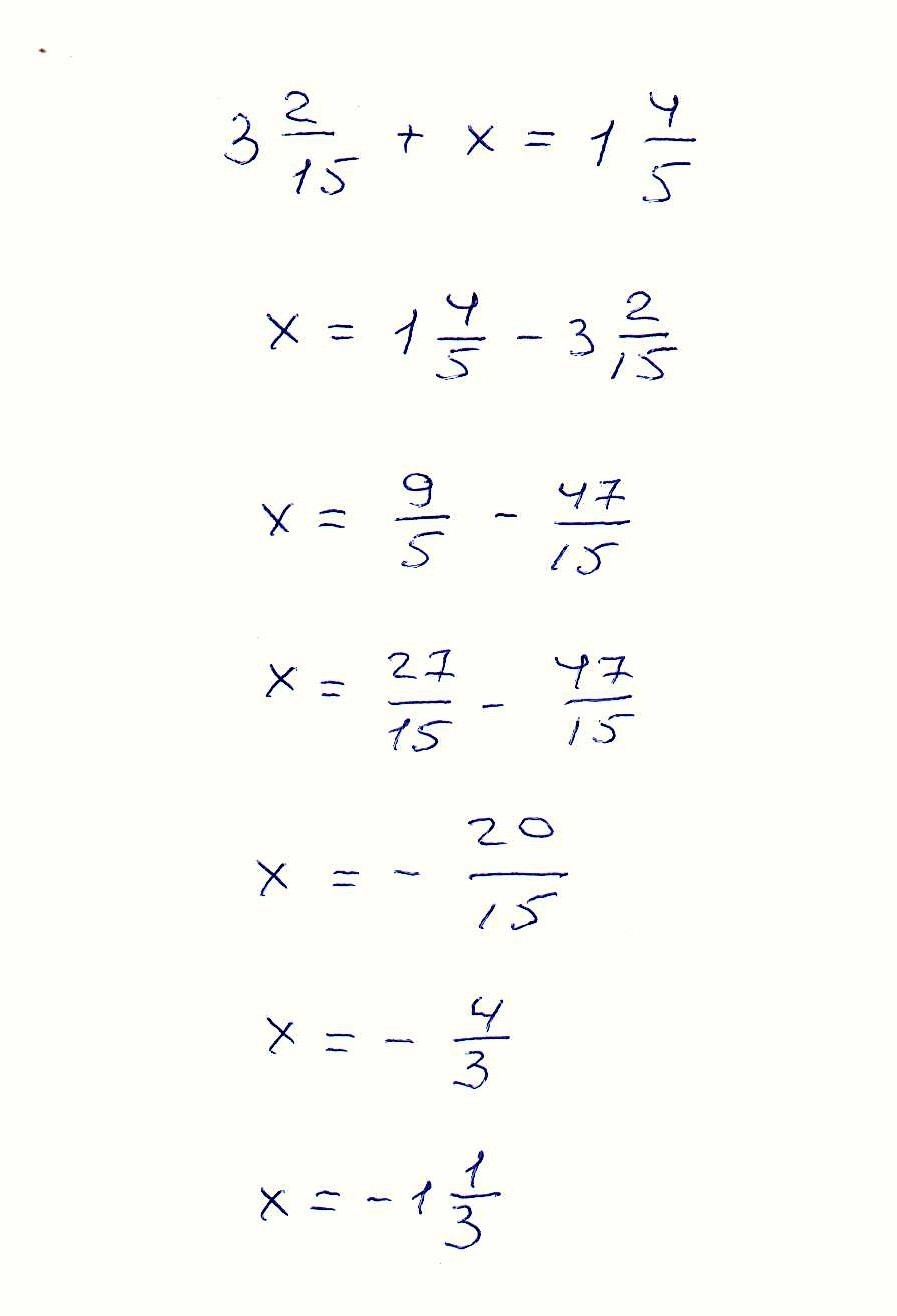 3 2/15 + x = 1 4/5
x = 1 4/5 - 3 2/15
x = 9/5 - 47/15
x = 27/15 - 47/15
x = - 20/15
x = - 4/3
x = - 1 1/3